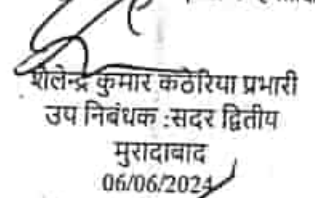 शैलेन्द्र कुमार कठेरिया प्रभारी
उप निबंधक :सदर द्वितीय
मुरादाबाद
06/06/2024